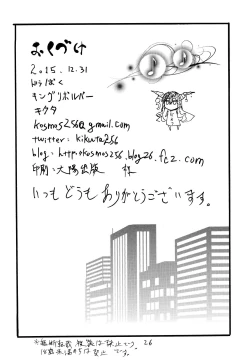 おくづけ
2015.12.31
はっぱく
キングリボルバー
キクタ
kosmos256@gmail.com
twitter: kikuta256
blog: http://kosmos256.blog26.fc2.com
印刷: 大陽出版 様
いつもどうもありがとうございます。
※無断転載 複製は禁止です。
18歳未満の方は禁止です。
26